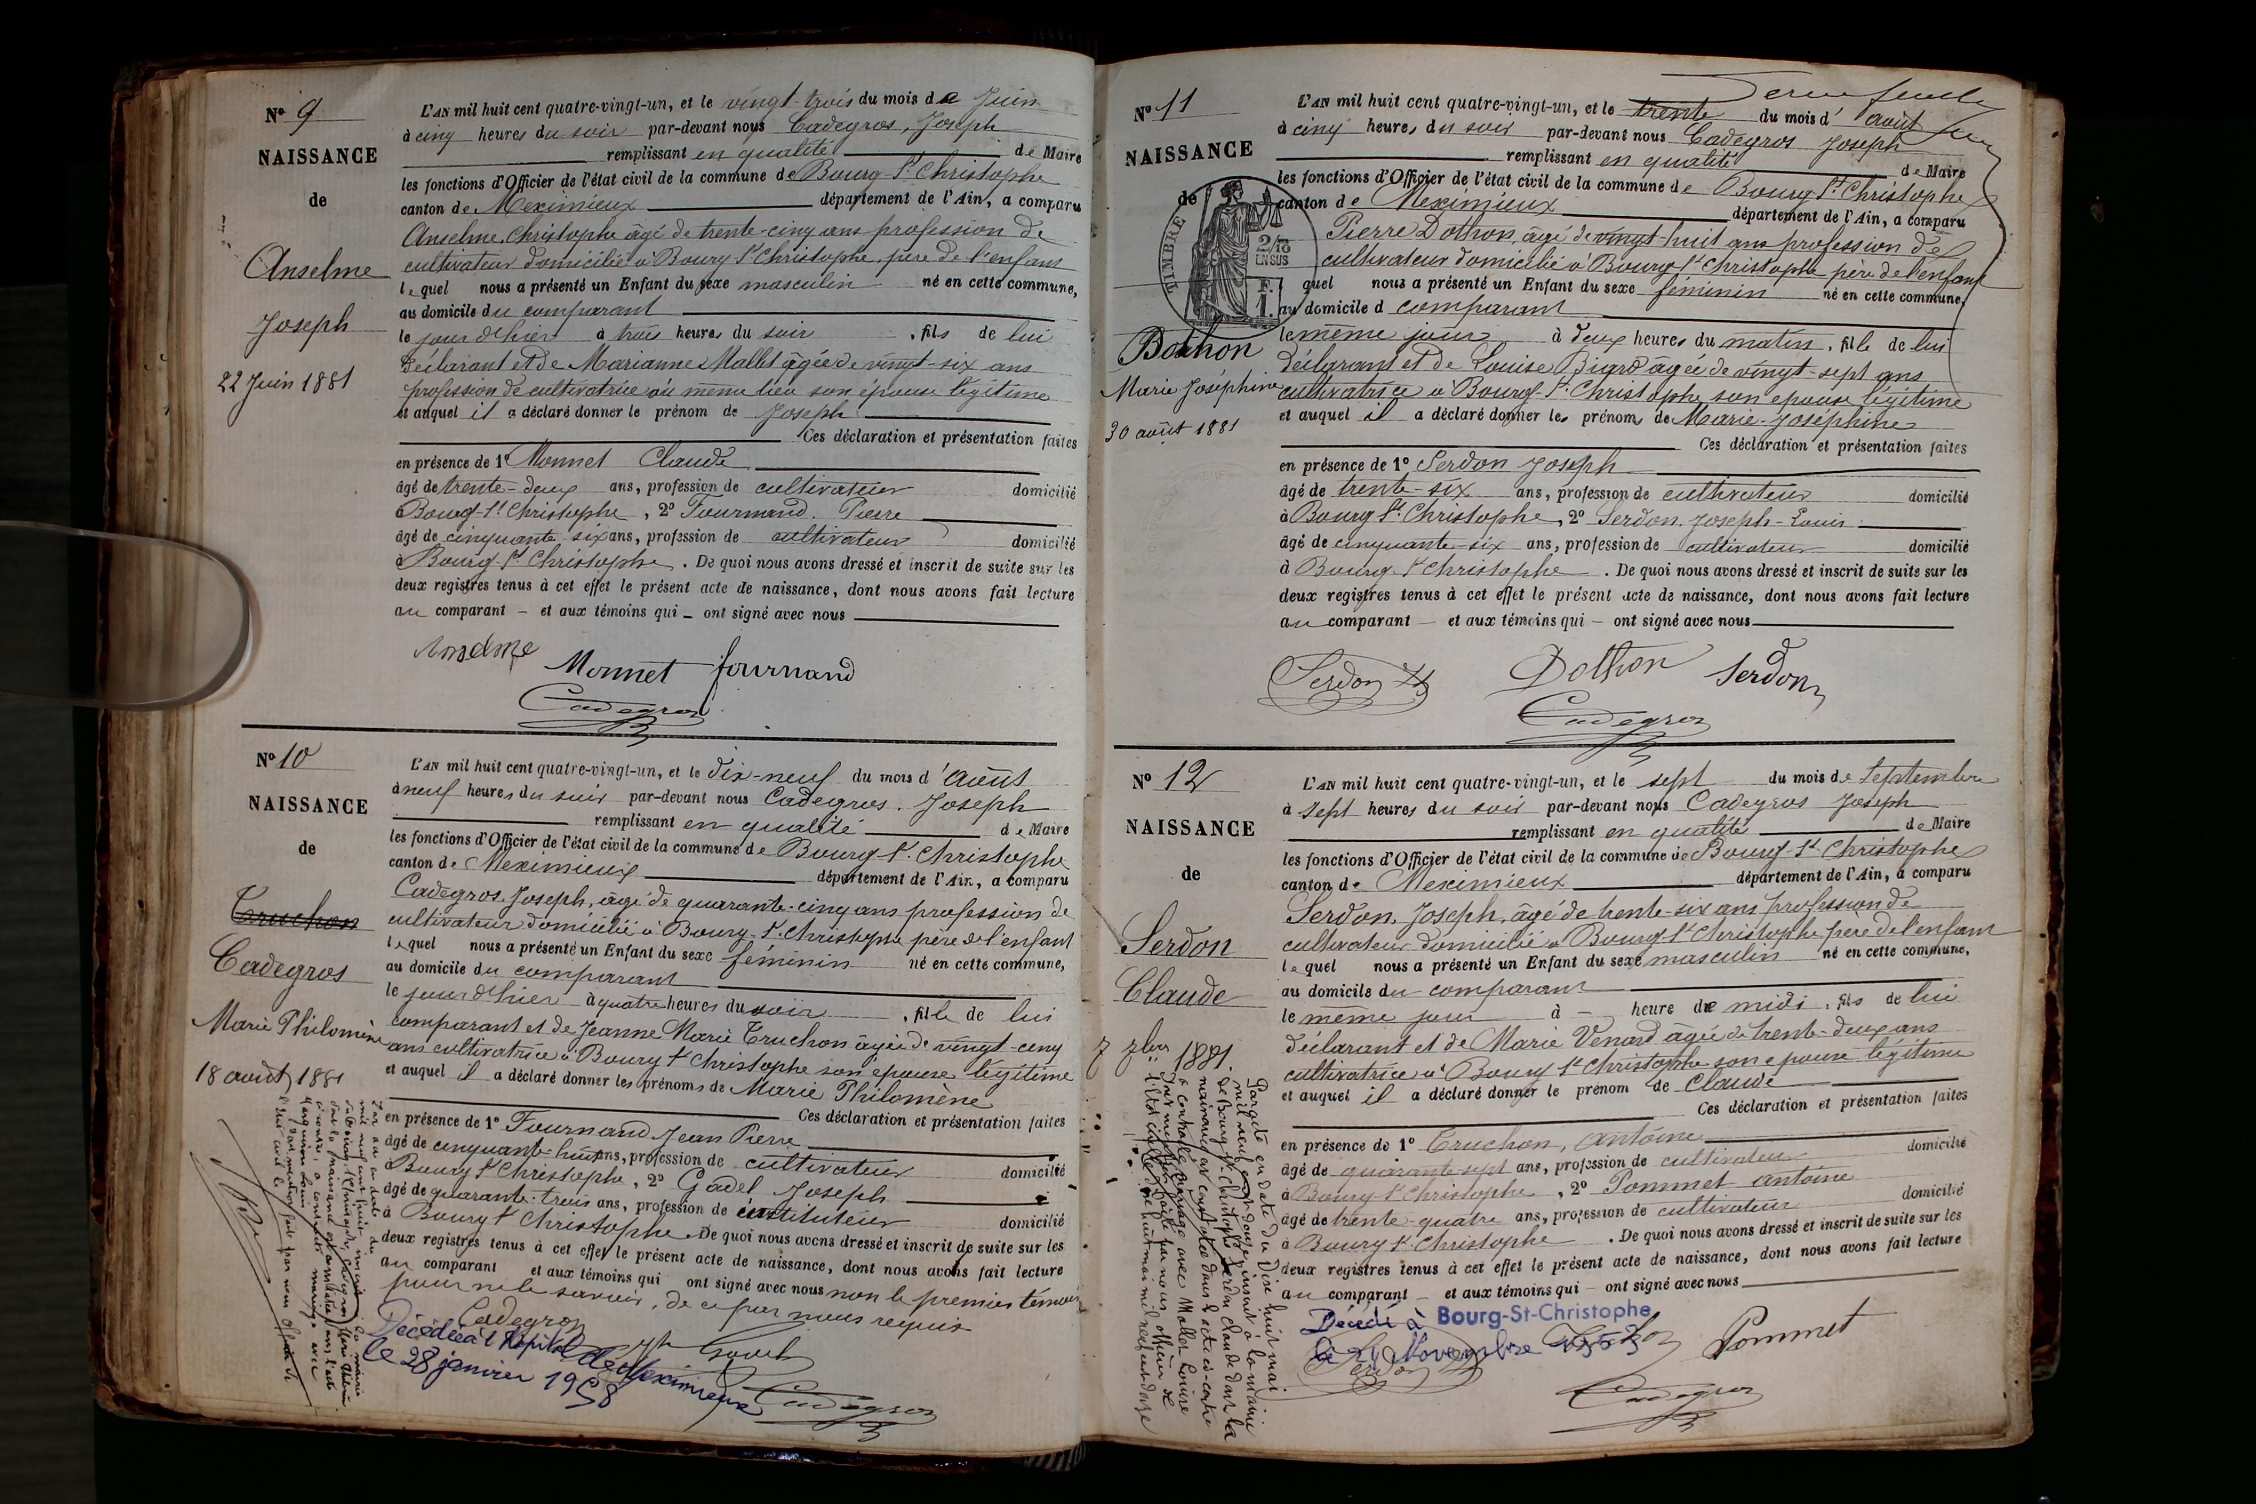 N° 9
NAISSANCE
de
Anselme
Joseph
22 Juin 1881
L'AN mil huit cent quatre-vingt-un, et le vingt-trois du mois de Juin
à cinq heures du soir par-devant nous Cadegros, Joseph
remplissant en qualité de Maire
les fonctions d'Officier de l'état civil de la commune de Bourg-St Christophe
canton de Meximieux département de l'Ain, a comparu
Anselme, Christophe âgé de trente-cinq ans profession de
cultivateur domicilié à Bourg St Christophe, père de l'enfant
lequel nous a présenté un Enfant du sexe masculin né en cette commune,
au domicile du comparant
le jour d'hier à trois heures du soir, fils de lui
déclarant et de Marianne Mallet âgée de vingt-six ans
profession de cultivatrice au même lieu son épouse légitime
et auquel il a déclaré donner le prénom de Joseph
Ces déclaration et présentation faites
en présence de 1° Monnet Claude
âgé de trente-deux ans, profession de cultivateur domicilié
à Bourg-St Christophe, 2° Fournand Pierre
âgé de cinquante-six ans, profession de cultivateur domicilié
à Bourg-St Christophe. De quoi nous avons dressé et inscrit de suite sur les
deux registres tenus à cet effet le présent acte de naissance, dont nous avons fait lecture
au comparant – et aux témoins qui – ont signé avec nous
Anselme
Monnet fournand
Cadegros
N° 10
NAISSANCE
de
Truchon
Cadegros
Marie Philomène
18 août 1881
L'AN mil huit cent quatre-vingt-un, et le dix-neuf du mois d'août
à neuf heures du soir par-devant nous Cadegros, Joseph
remplissant en qualité de Maire
les fonctions d'Officier de l'état civil de la commune de Bourg-St. Christophe
canton de Meximieux département de l'Ain, a comparu
Cadegros Joseph, âgé de quarante-cinq ans profession de
cultivateur domicilié à Bourg-St. Christophe père de l'enfant
lequel nous a présenté un Enfant du sexe féminin né en cette commune,
au domicile du comparant
le jour d'hier à quatre heures du soir, fille de lui
comparant et de Jeanne Marie Truchon âgée de vingt-cinq
ans cultivatrice à Bourg St Christophe son épouse légitime
et auquel il a déclaré donner les prénoms de Marie Philomène
Ces déclaration et présentation faites
en présence de 1° Fournand Jean Pierre
âgé de cinquante-huit ans, profession de cultivateur domicilié
à Bourg St Christophe, 2° Godel Joseph
âgé de quarante-trois ans, profession de instituteur domicilié
à Bourg St Christophe. De quoi nous avons dressé et inscrit de suite sur les
deux registres tenus à cet effet le présent acte de naissance, dont nous avons fait lecture
au comparant et aux témoins qui ont signé avec nous non le premier témoin
pour ne le savoir, de ce par nous requis
Cadegros
Décédée à l'hôpital de Meximieux
le 28 janvier 1958
Cadegros
N° 11
NAISSANCE
de
TIMBRE
2/10 EN SUS
Dothon
Marie Joséphine
30 août 1881
L'AN mil huit cent quatre-vingt-un, et le trente du mois d'août
à cinq heures du soir par-devant nous Cadegros Joseph
remplissant en qualité de Maire
les fonctions d'Officier de l'état civil de la commune de Bourg St Christophe
canton de Meximieux département de l'Ain, a comparu
Pierre Dothon, âgé de vingt-huit ans profession de
cultivateur domicilié à Bourg St Christophe père de l'enfant
quel nous a présenté un Enfant du sexe féminin né en cette commune,
au domicile d comparant
le même jour à deux heures du matin, fille de lui
déclarant et de Louise Biard âgée de vingt-sept ans
cultivatrice à Bourg-St. Christophe son épouse légitime
et auquel il a déclaré donner les prénoms de Marie-Joséphine
Ces déclaration et présentation faites
en présence de 1° Serdon Joseph
âgé de trente-six ans, profession de cultivateur domicilié
à Bourg St. Christophe, 2° Serdon Joseph-Louis
âgé de cinquante-six ans, profession de cultivateur domicilié
à Bourg-St Christophe. De quoi nous avons dressé et inscrit de suite sur les
deux registres tenus à cet effet le présent acte de naissance, dont nous avons fait lecture
au comparant – et aux témoins qui – ont signé avec nous
Serdon Dothon Serdon
Cadegros
N° 12
NAISSANCE
de
Serdon
Claude
7 7bre 1881.
L'AN mil huit cent quatre-vingt-un, et le sept du mois de Septembre
à sept heures du soir par-devant nous Cadegros Joseph
remplissant en qualité de Maire
les fonctions d'Officier de l'état civil de la commune de Bourg-St Christophe
canton de Meximieux département de l'Ain, a comparu
Serdon, Joseph, âgé de trente-six ans profession de
cultivateur domicilié à Bourg St Christophe père de l'enfant
lequel nous a présenté un Enfant du sexe masculin né en cette commune,
au domicile du comparant
le même jour à – heure de midi, fils de lui
déclarant et de Marie Venard âgée de trente-deux ans
cultivatrice à Bourg St Christophe son épouse légitime
et auquel il a déclaré donner le prénom de Claude
Ces déclaration et présentation faites
en présence de 1° Truchon, Antoine
âgé de quarante-sept ans, profession de cultivateur domicilié
à Bourg-St Christophe, 2° Pommet Antoine
âgé de trente-quatre ans, profession de cultivateur domicilié
à Bourg St. Christophe. De quoi nous avons dressé et inscrit de suite sur les
deux registres tenus à cet effet le présent acte de naissance, dont nous avons fait lecture
au comparant – et aux témoins qui – ont signé avec nous
Décédé à Bourg-St-Christophe
Novembre
Serdon
Pommet
Cadegros